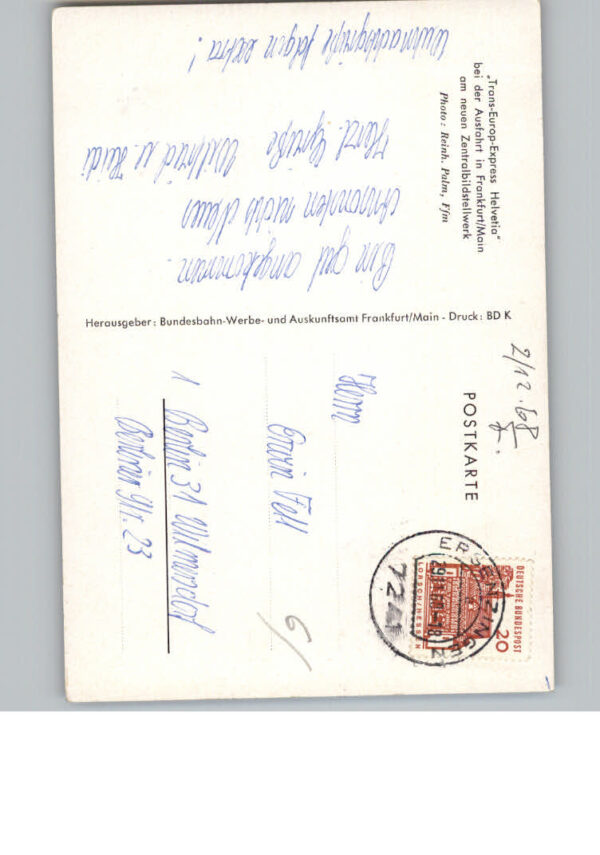 "Trans-Europ-Express Helvetia"
bei der Ausfahrt in Frankfurt/Main
am neuen Zentralbildstellwerk
Photo: Reinh. Palm, Ffm
Bin gut angekommen.
Ansonsten nichts Neues
Herzl. Grüße Wiltrud u. Heidi
Weihnachtsgrüße folgen extra!
Herausgeber: Bundesbahn-Werbe- und Auskunftsamt Frankfurt/Main - Druck: BD K
2/12.68
POSTKARTE
Herrn
Erwin Fell
1 Berlin 31 Wilmersdorf
Str. 23
6/
ERGENZINGEN
7241
DEUTSCHE BUNDESPOST
20
LORSCH/HESSEN